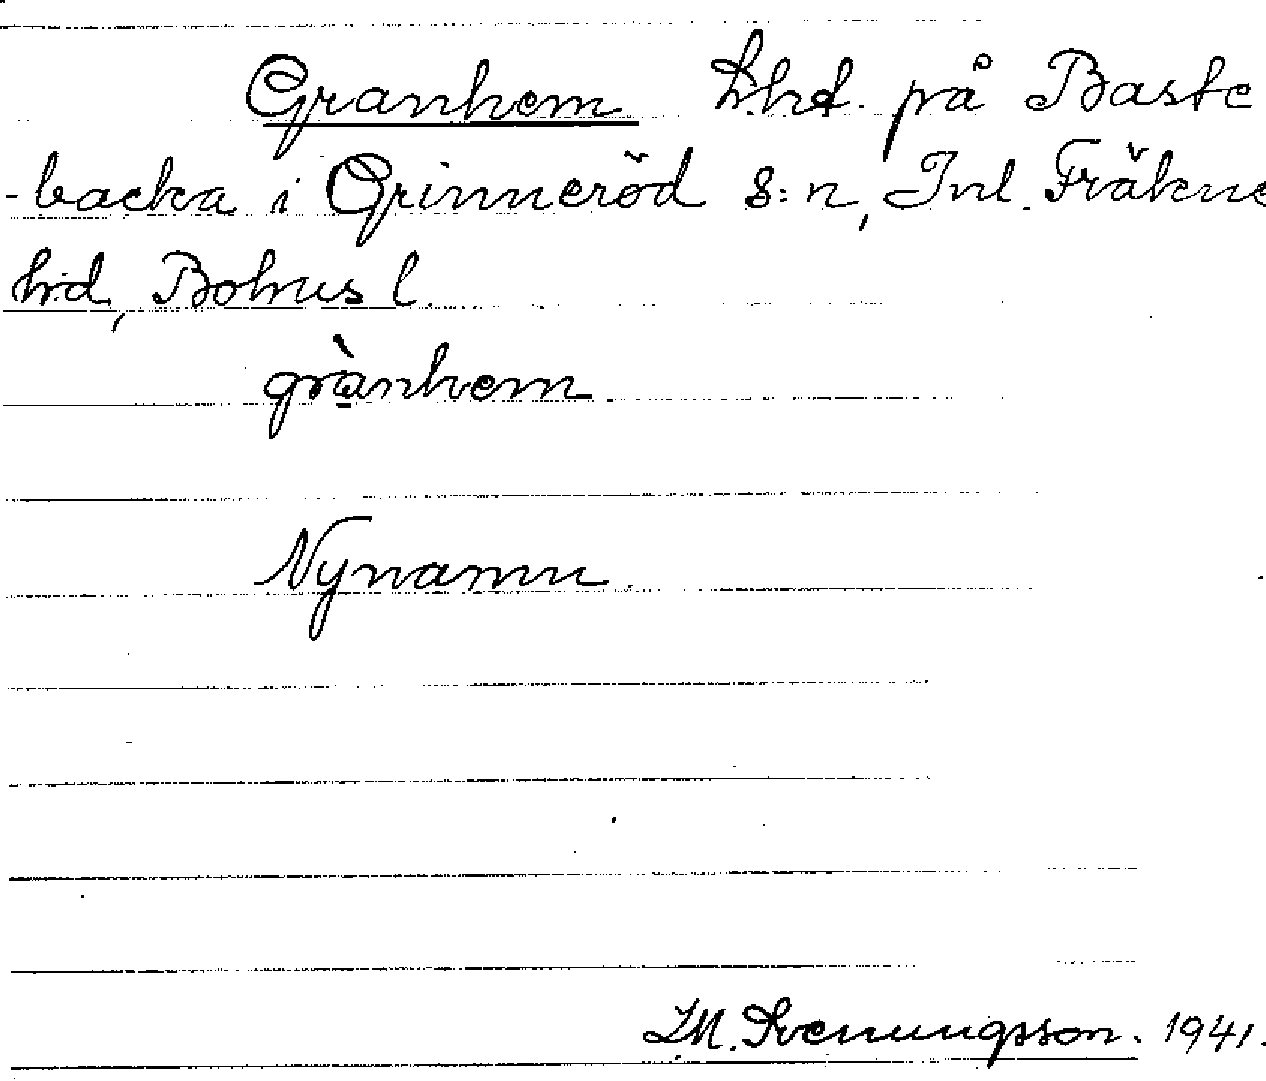 Granhem Lhd. på Baste
-backa i Grinneröd s:n, Inl. Fräkne
hd, Bohus l.
grànhem
Nynamn.
I.M. Svenungsson. 1941.